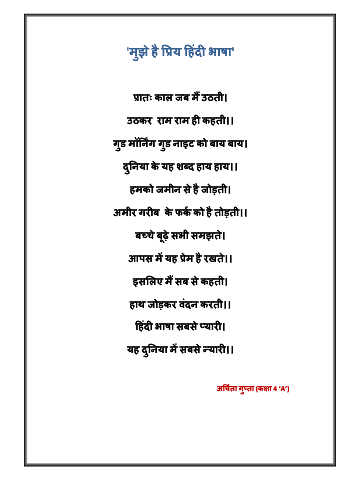 'मुझे है प्रिय हिंदी भाषा'
प्रातः काल जब मैं उठती।
उठकर राम राम ही कहती।।
गुड मॉर्निंग गुड नाइट को बाय बाय।
दुनिया के यह शब्द हाय हाय।।
हमको जमीन से है जोड़ती।
अमीर गरीब के फर्क को है तोड़ती।।
बच्चे बूढ़े सभी समझते।
आपस में यह प्रेम है रखते।।
इसलिए मैं सब से कहती।
हाथ जोड़कर वंदन करती।।
हिंदी भाषा सबसे प्यारी।
यह दुनिया में सबसे न्यारी।।
अर्चिता गुप्ता (कक्षा 4 'A')